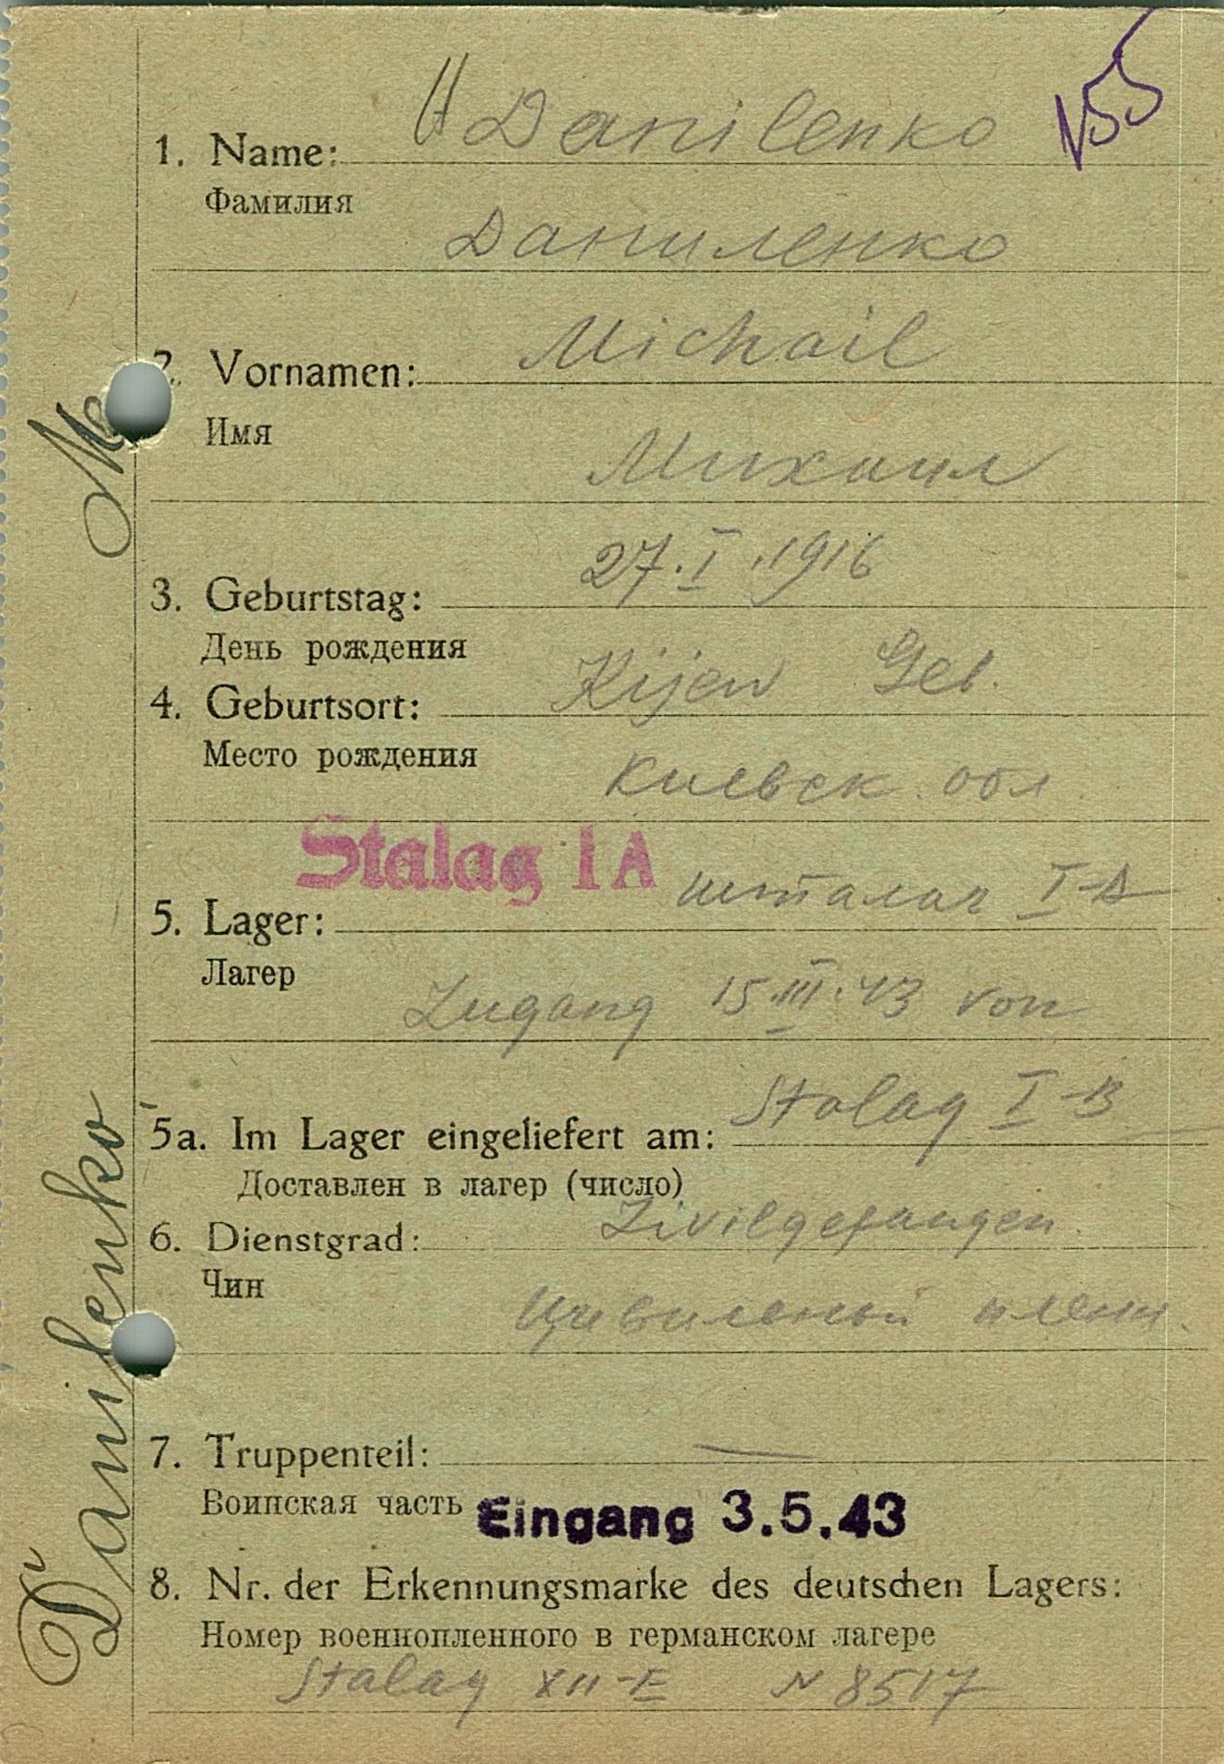 1. Name: Danilenko
Фамилия
Даниленко
2. Vornamen: Michail
Имя
Михаил
3. Geburtstag: 27. I. 1916
День рождения
4. Geburtsort: Kijew Geb.
Место рождения
Киевск. обл
Stalag I A
5. Lager: шталаг I-A
Лагер
Zugang 15.III.43 von
Stalag I-B
5a. Im Lager eingeliefert am:
Доставлен в лагер (число)
6. Dienstgrad: Zivilgefangen.
Чин
Цивильный плен.
7. Truppenteil: —
Воинская часть
Eingang 3.5.43
8. Nr. der Erkennungsmarke des deutschen Lagers:
Номер военнопленного в германском лагере
Stalag XII-F N 8517
Danilenko